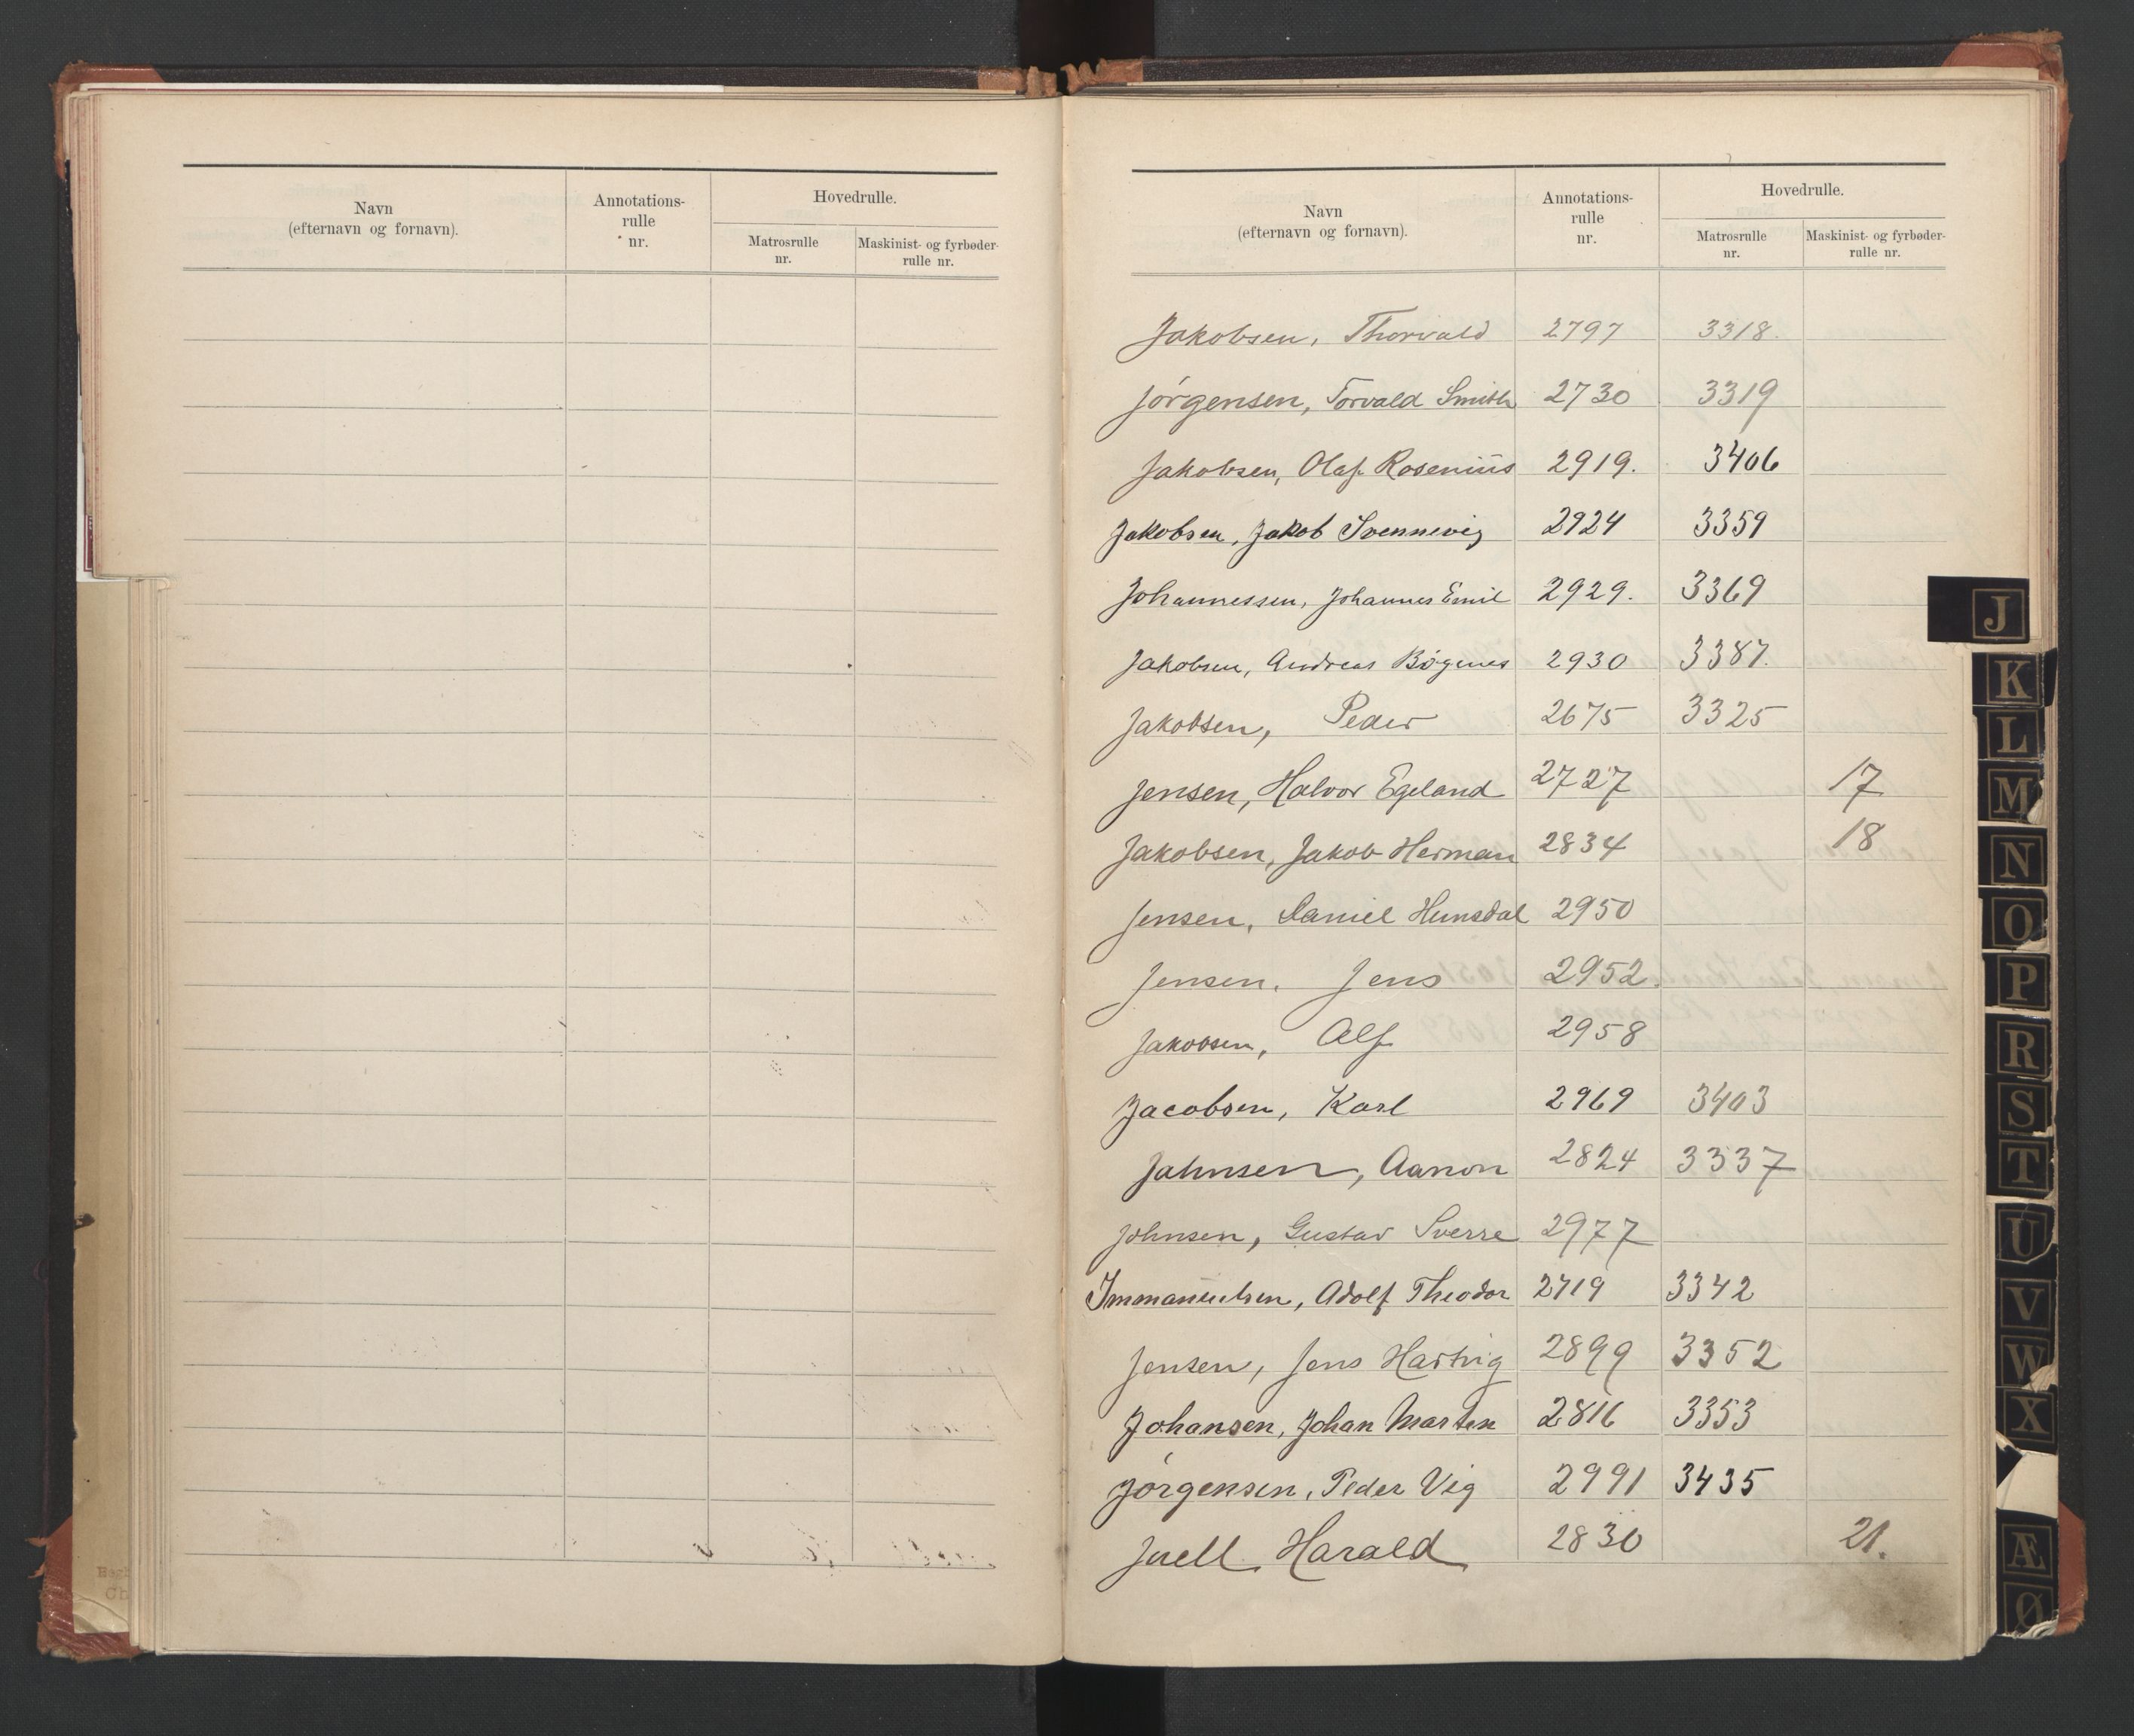 Navn
(efternavn og fornavn).
Annotations-
rulle
nr.
Hovedrulle.
Matrosrulle
nr.
Maskinist- og fyrbøder-
rulle nr.
Navn
(efternavn og fornavn).
Annotations-
rulle
nr.
Hovedrulle.
Matrosrulle
nr.
Maskinist- og fyrbøder-
rulle nr.
Jakobsen, Thorvald 2797 3318.
Jørgensen, Torvald Smith 2730 3319
Jakobsen, Olaf Rosenius 2919. 3406
Jakobsen, Jakob Svennevig 2924 3359
Johannessen, Johannes Emil 2929. 3369
Jakobsen, Andreas Bögenes 2930 3387.
Jakobsen, Peder 2675 3325
Jensen, Halvor Egeland 2727 17
Jakobsen, Jakob Herman 2834 18
Jensen, Daniel Hunsdal 2950
Jensen, Jens 2952.
Jakobsen, Alf 2958
Jacobsen, Karl 2969 3403
Jahnsen, Aanon 2824 3337
Johnsen, Gustav Sverre 2977
Immanuelsen, Adolf Theodor 2719 3342
Jensen, Jens Hartvig 2899 3352
Johansen, Johan Marten 2816 3353
Jørgensen, Peder Vig 2991 3435
Juell Harald 2830 21.
J
K
L
M
N
O
P
R
S
T
U
V
W
X
Æ
Ø